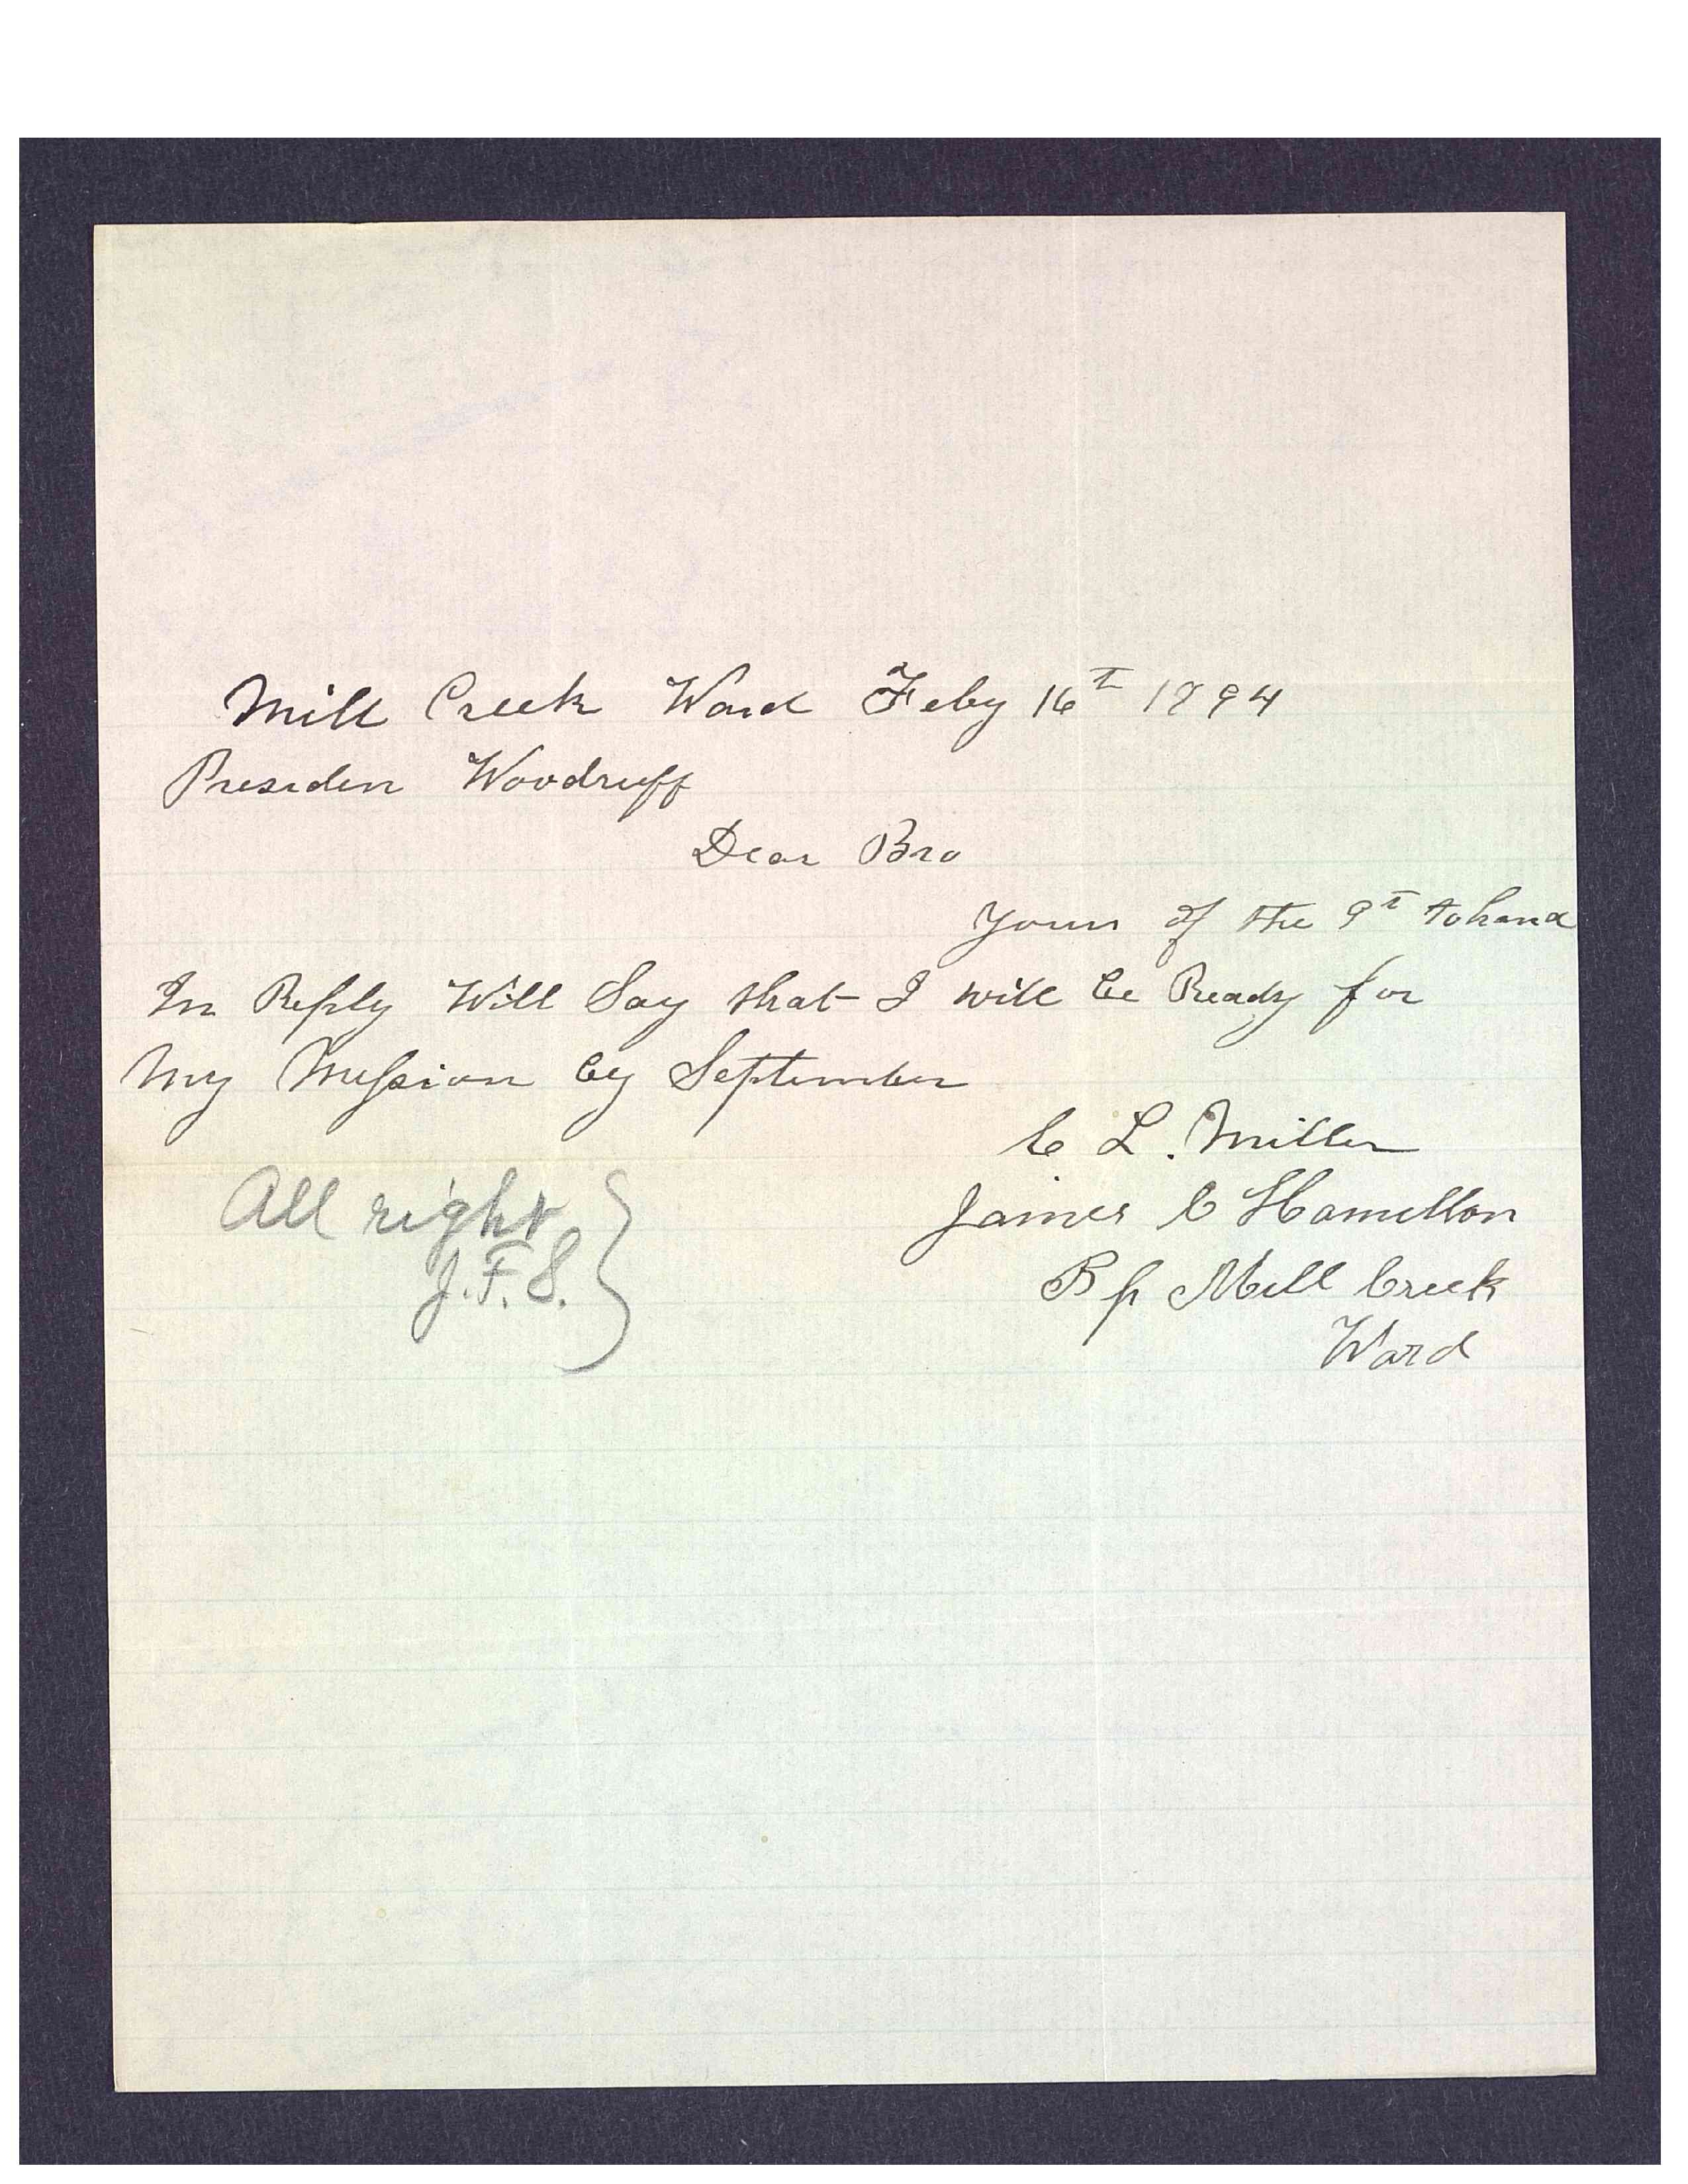 Mill Creek Ward Feby 16th 1894
Presiden Woodruff
Dear Bro
Yours of the 9th to hand
In Reply Will Say that I will be Ready for
My Mission by September
C L. Miller
James C Hamilton
Bp Mill Creek
Ward
All right
J.F.S.